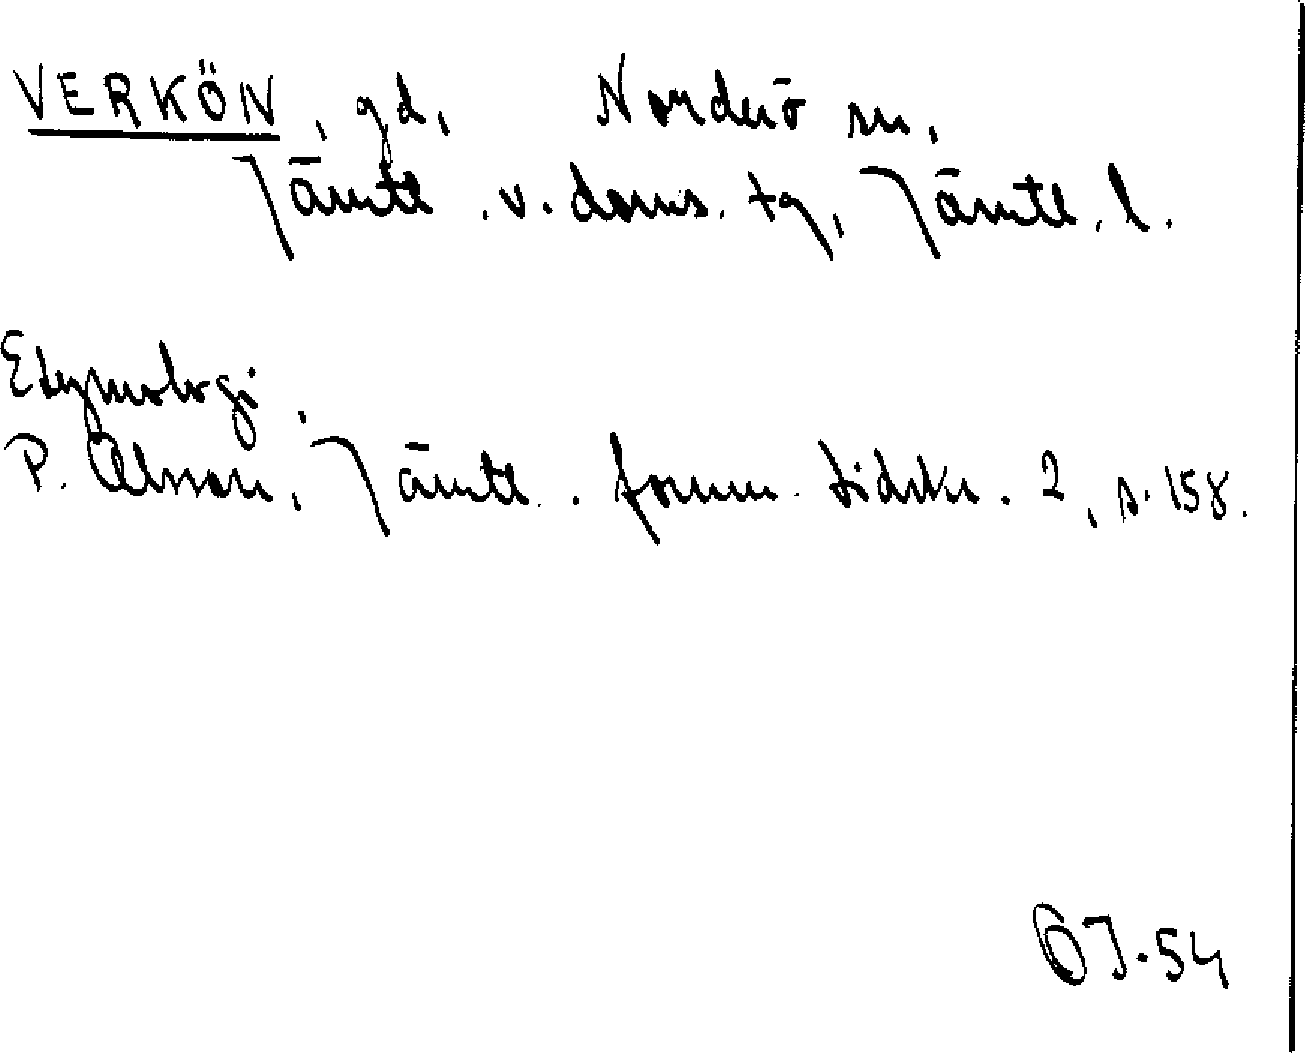 VERKÖN, gd, Norderö sn,
Jämtl. v. doms. tg, Jämtl. l.
Etymologi.
P. Olsson, Jämtl. fornm. tidskr. 2, s. 158.
ÖJ. 54